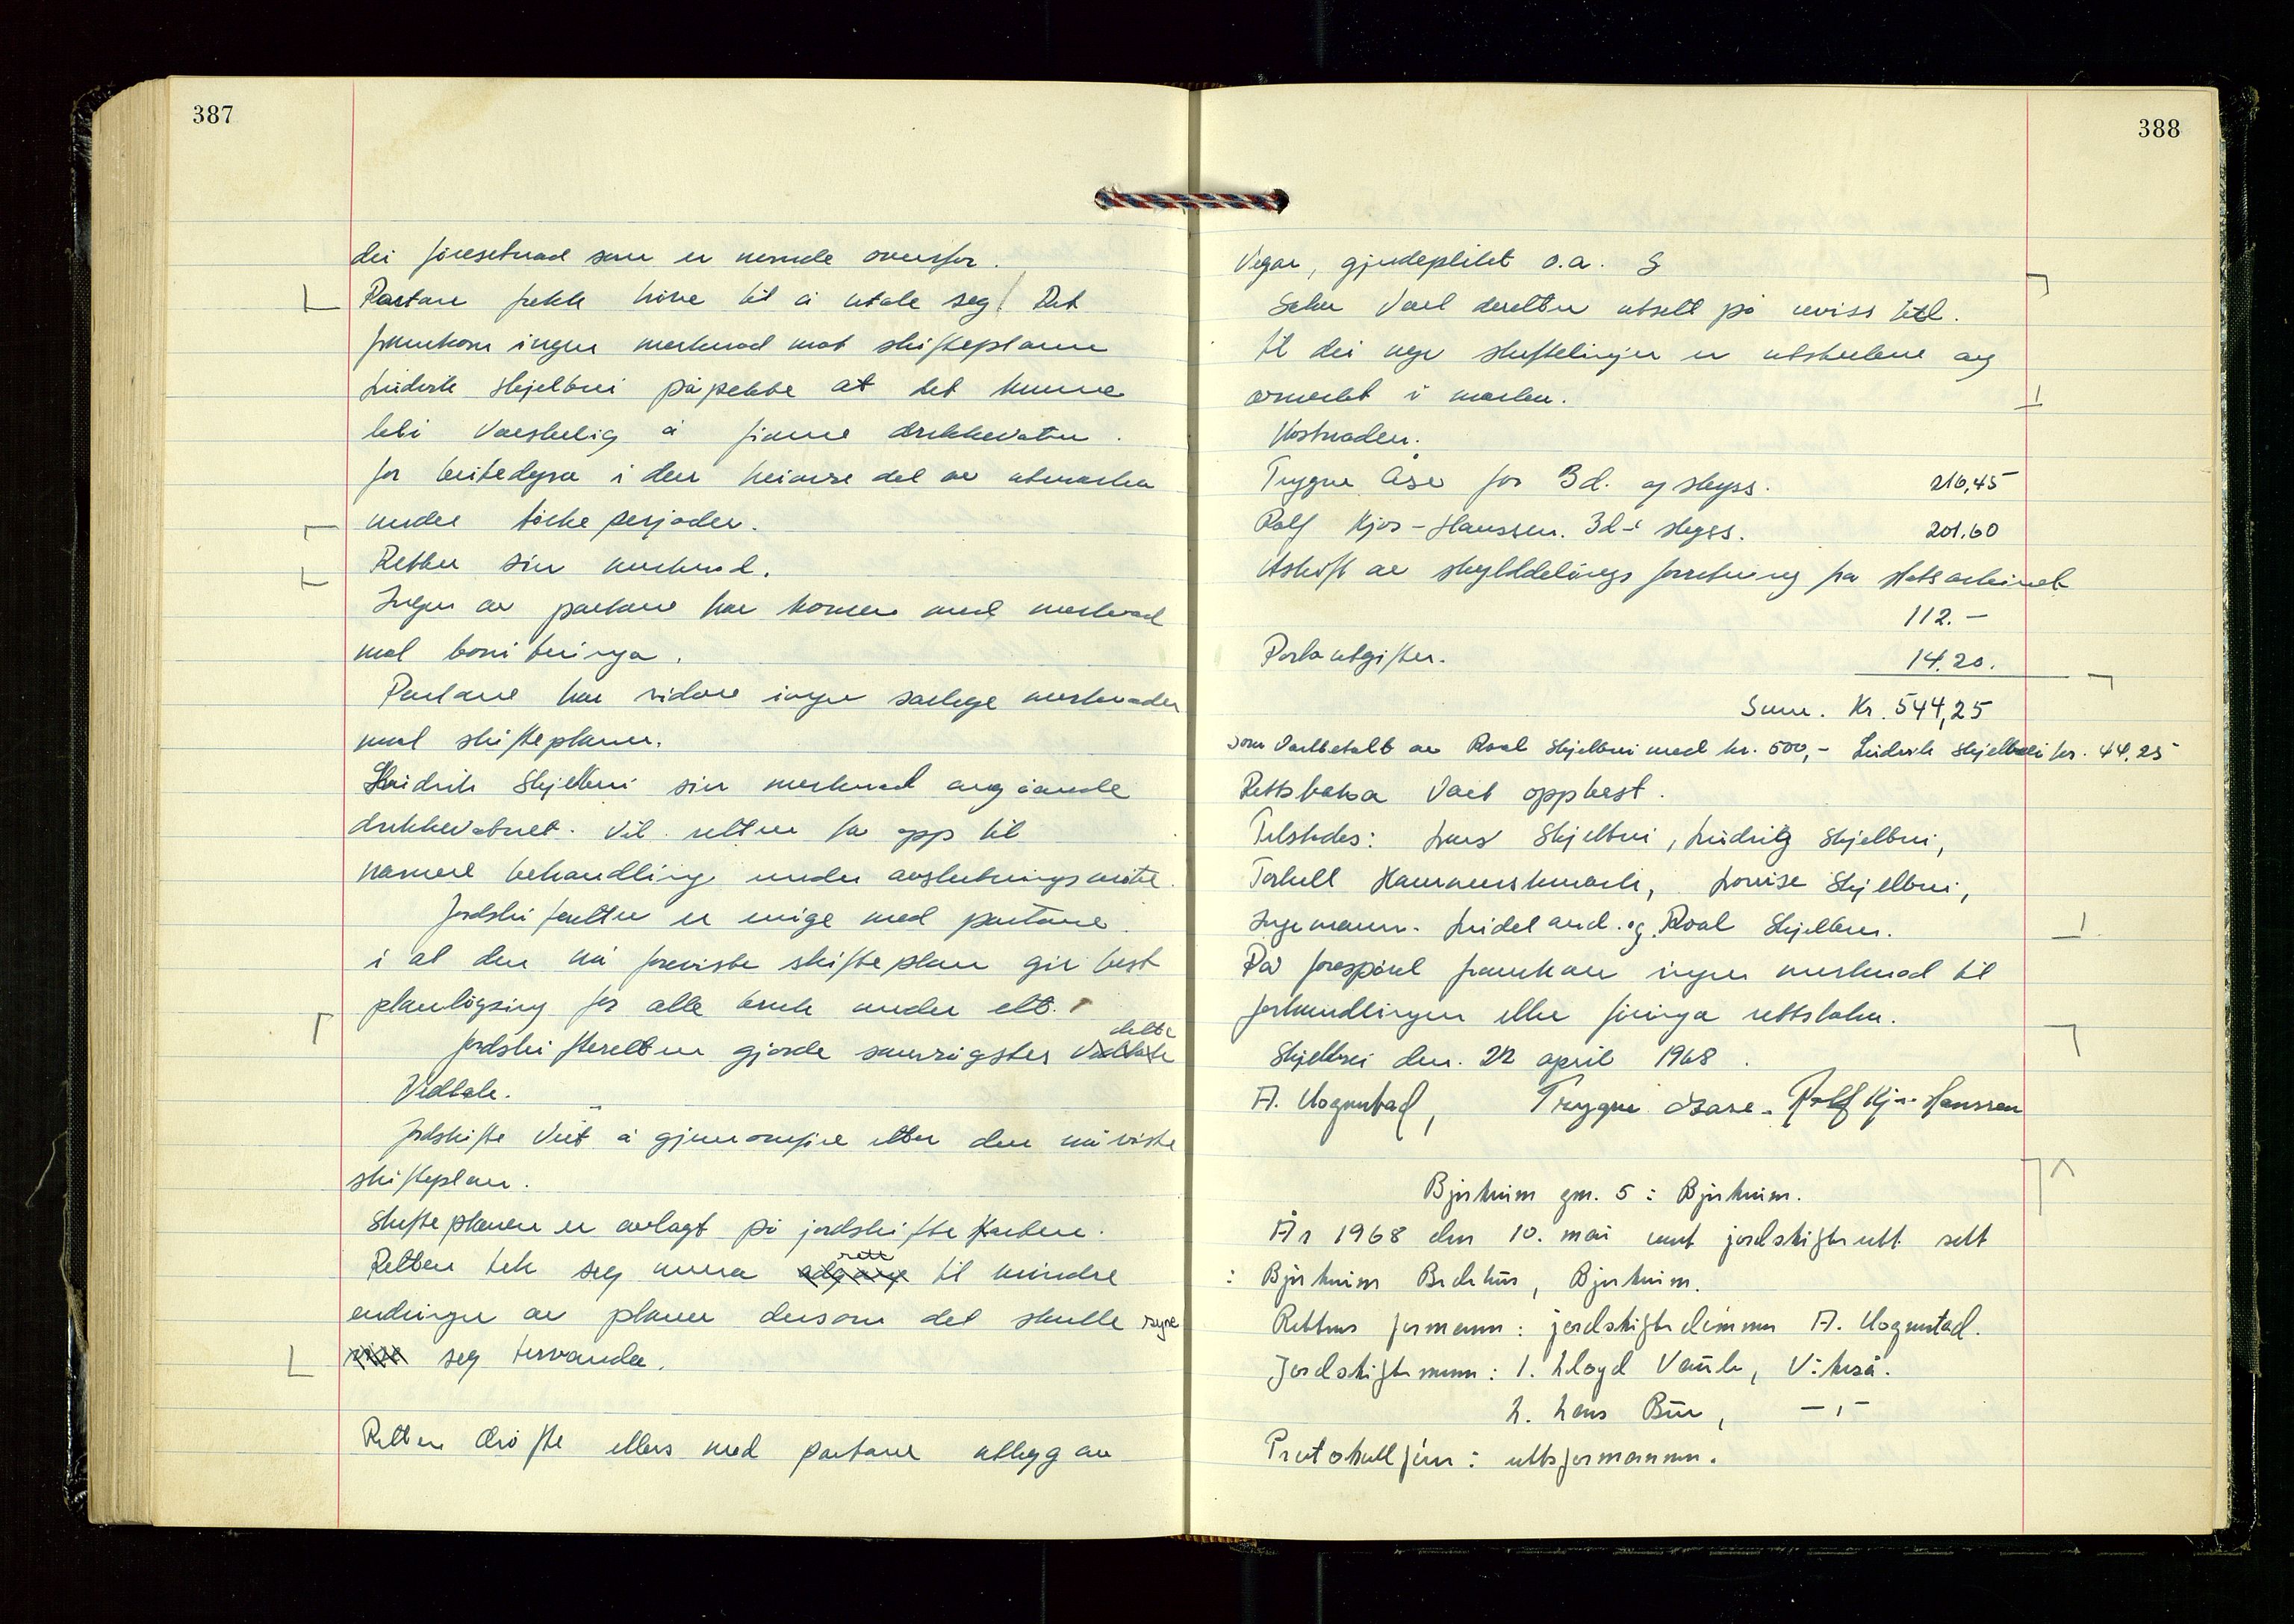 387
dei føresetnad som er nemnde ovenfor.
Partane fekk høve til å uttale seg. Det
framkom ingen merknad mot skifteplanen
Lúdvik Skjelbrei påpekte at det kunne
bli vanskelig å finne drikkevatn
for beitedyra i den heimre del av utmarka
under tørke perjoder.
Retten sin merknad.
Ingen av partane har komen med merknad
mot boniteringa.
Partane har vidare ingen særlege merknader
mot skifteplanen.
Lúdvik Skjelbrei sin merknad angåande
drikkevatnet. Vil retten ta opp til
nærmere behandling under avslutningsmøte.
Jordskifteretten er enige med partane
i at den nå foreviste skifteplan gir best
planløysing for alle bruk under ett.
Jordskifteretten gjorde samrøystes dette
Vedtak.
Jordskifte vert å gjennomføre etter den nå viste
skifteplan.
Skifteplanen er avlagt på jordskifte kartene.
Retten tek seg rett til mindre
endringer av planen dersom det skulle syne
seg turvande.
Retten drøfte ellers med partane utlegg av
388
Vegar, gjerdeplikt o.a.
Saka vart deretter utsett på uviss tid.
til dei nye skiftelinjer er utstukne og
avmerket i marka.
Kostnader.
Trygve Åse for 3 d. og skyss. 216,45
Rolf Kjos-Hanssen. 3 d - skyss. 201.60
Utskift av skylddelings forretning fra Statsarkivet
112.-
Portoutgifter. 14.20.
Sum. Kr. 544,25
som vart betalt av Roal Skjelbrei med kr. 500,- Lúdvik Skjelbrei kr. 44,25
Rettsboka vart opplest.
Tilstedes: Lars Skjelbrei, Lúdvig Skjelbrei,
Torkell Hammersmark, Lovise Skjelbrei,
Ingemann Lideland og Roal Skjelbrei.
På forespørsel framkom ingen merknad til
forhandlingen eller føringa rettsboka.
Skjelbrei den. 22 april 1968.
A. Hognestad, Trygve Aase - Rolf Kjos-Hanssen
Bjerkreim gnr. 5 : Bjerkreim.
År 1968 den 10. mai vart jordskifterett sett
i Bjerkreim Bedehús, Bjerkreim.
Rettens formann: jordskiftedommer A. Hognestad.
Jordskiftemenn: 1. Lloyd Vaule, Vikeså.
2. Lars Búe, -"-
Protokollfører: rettsformannen.